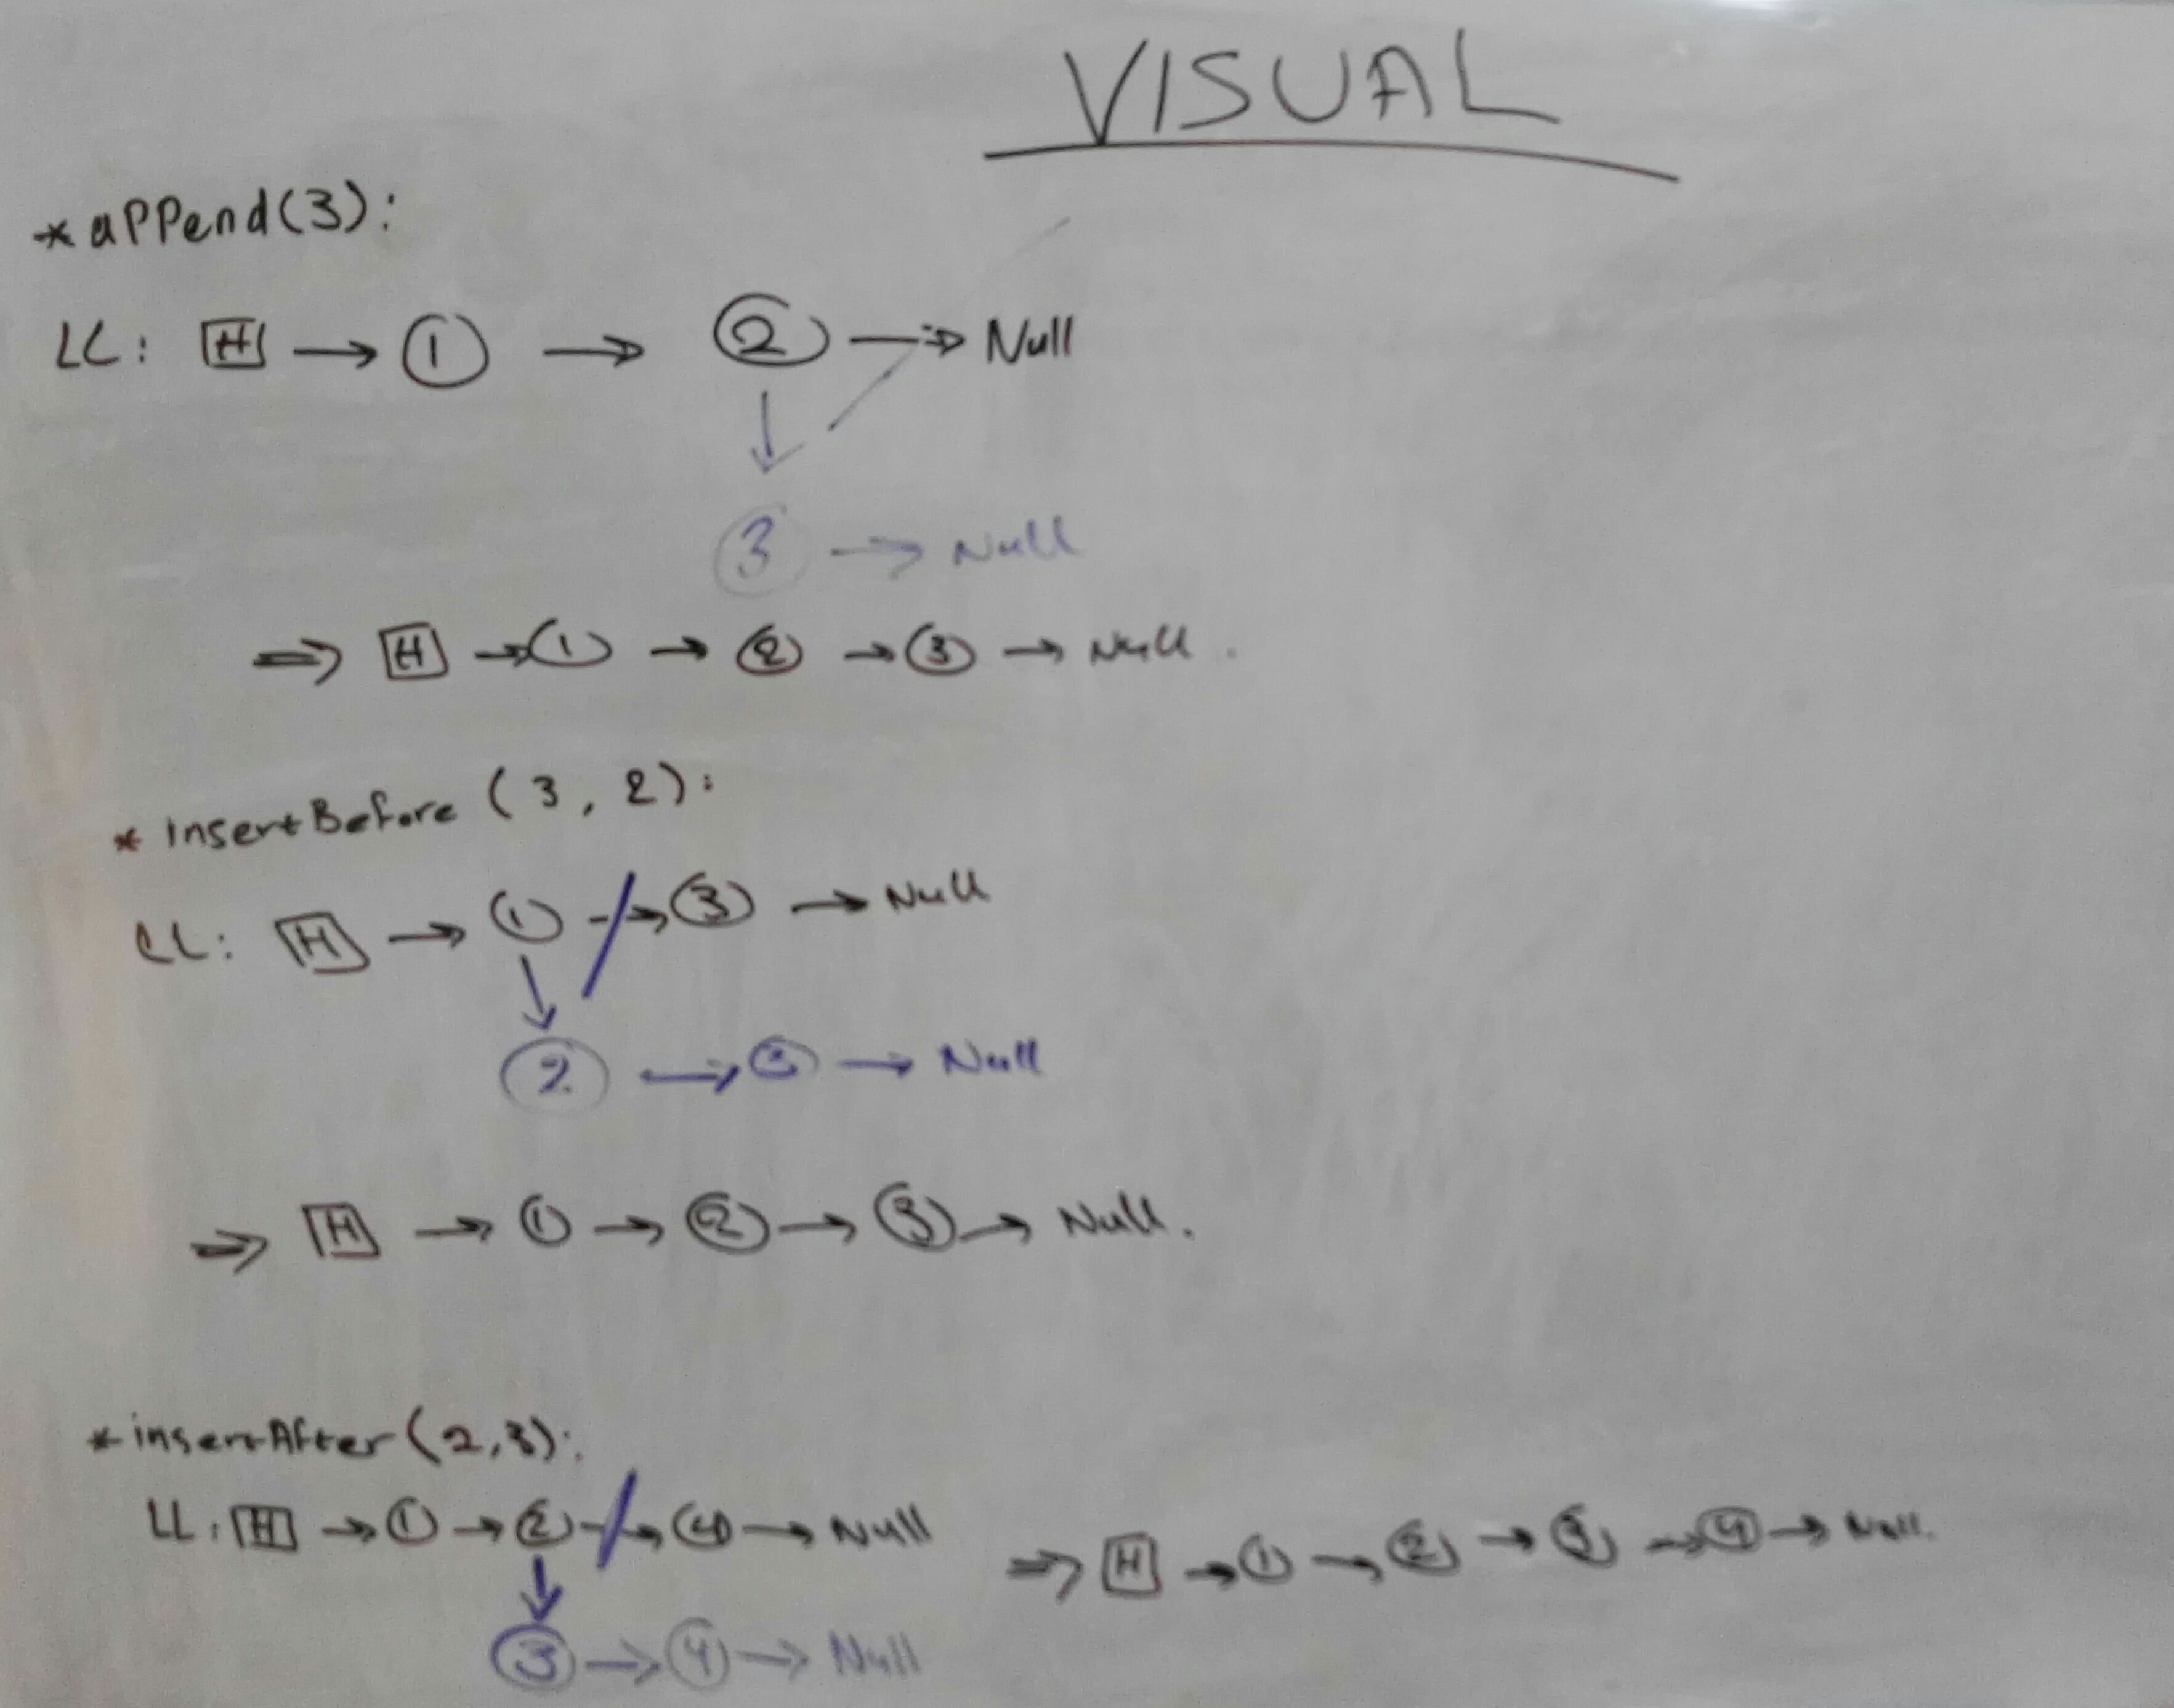 VISUAL
* append(3):
LL: H → 1 → 2 → Null
3 → Null
⇒ H → 1 → 2 → 3 → Null.
* insertBefore (3, 2):
LL: H → 1 → 3 → Null
2 → 3 → Null
⇒ H → 1 → 2 → 3 → Null.
* insertAfter (2,3):
LL: H → 1 → 2 → 4 → Null
3 → 4 → Null
⇒ H → 1 → 2 → 3 → 4 → Null.